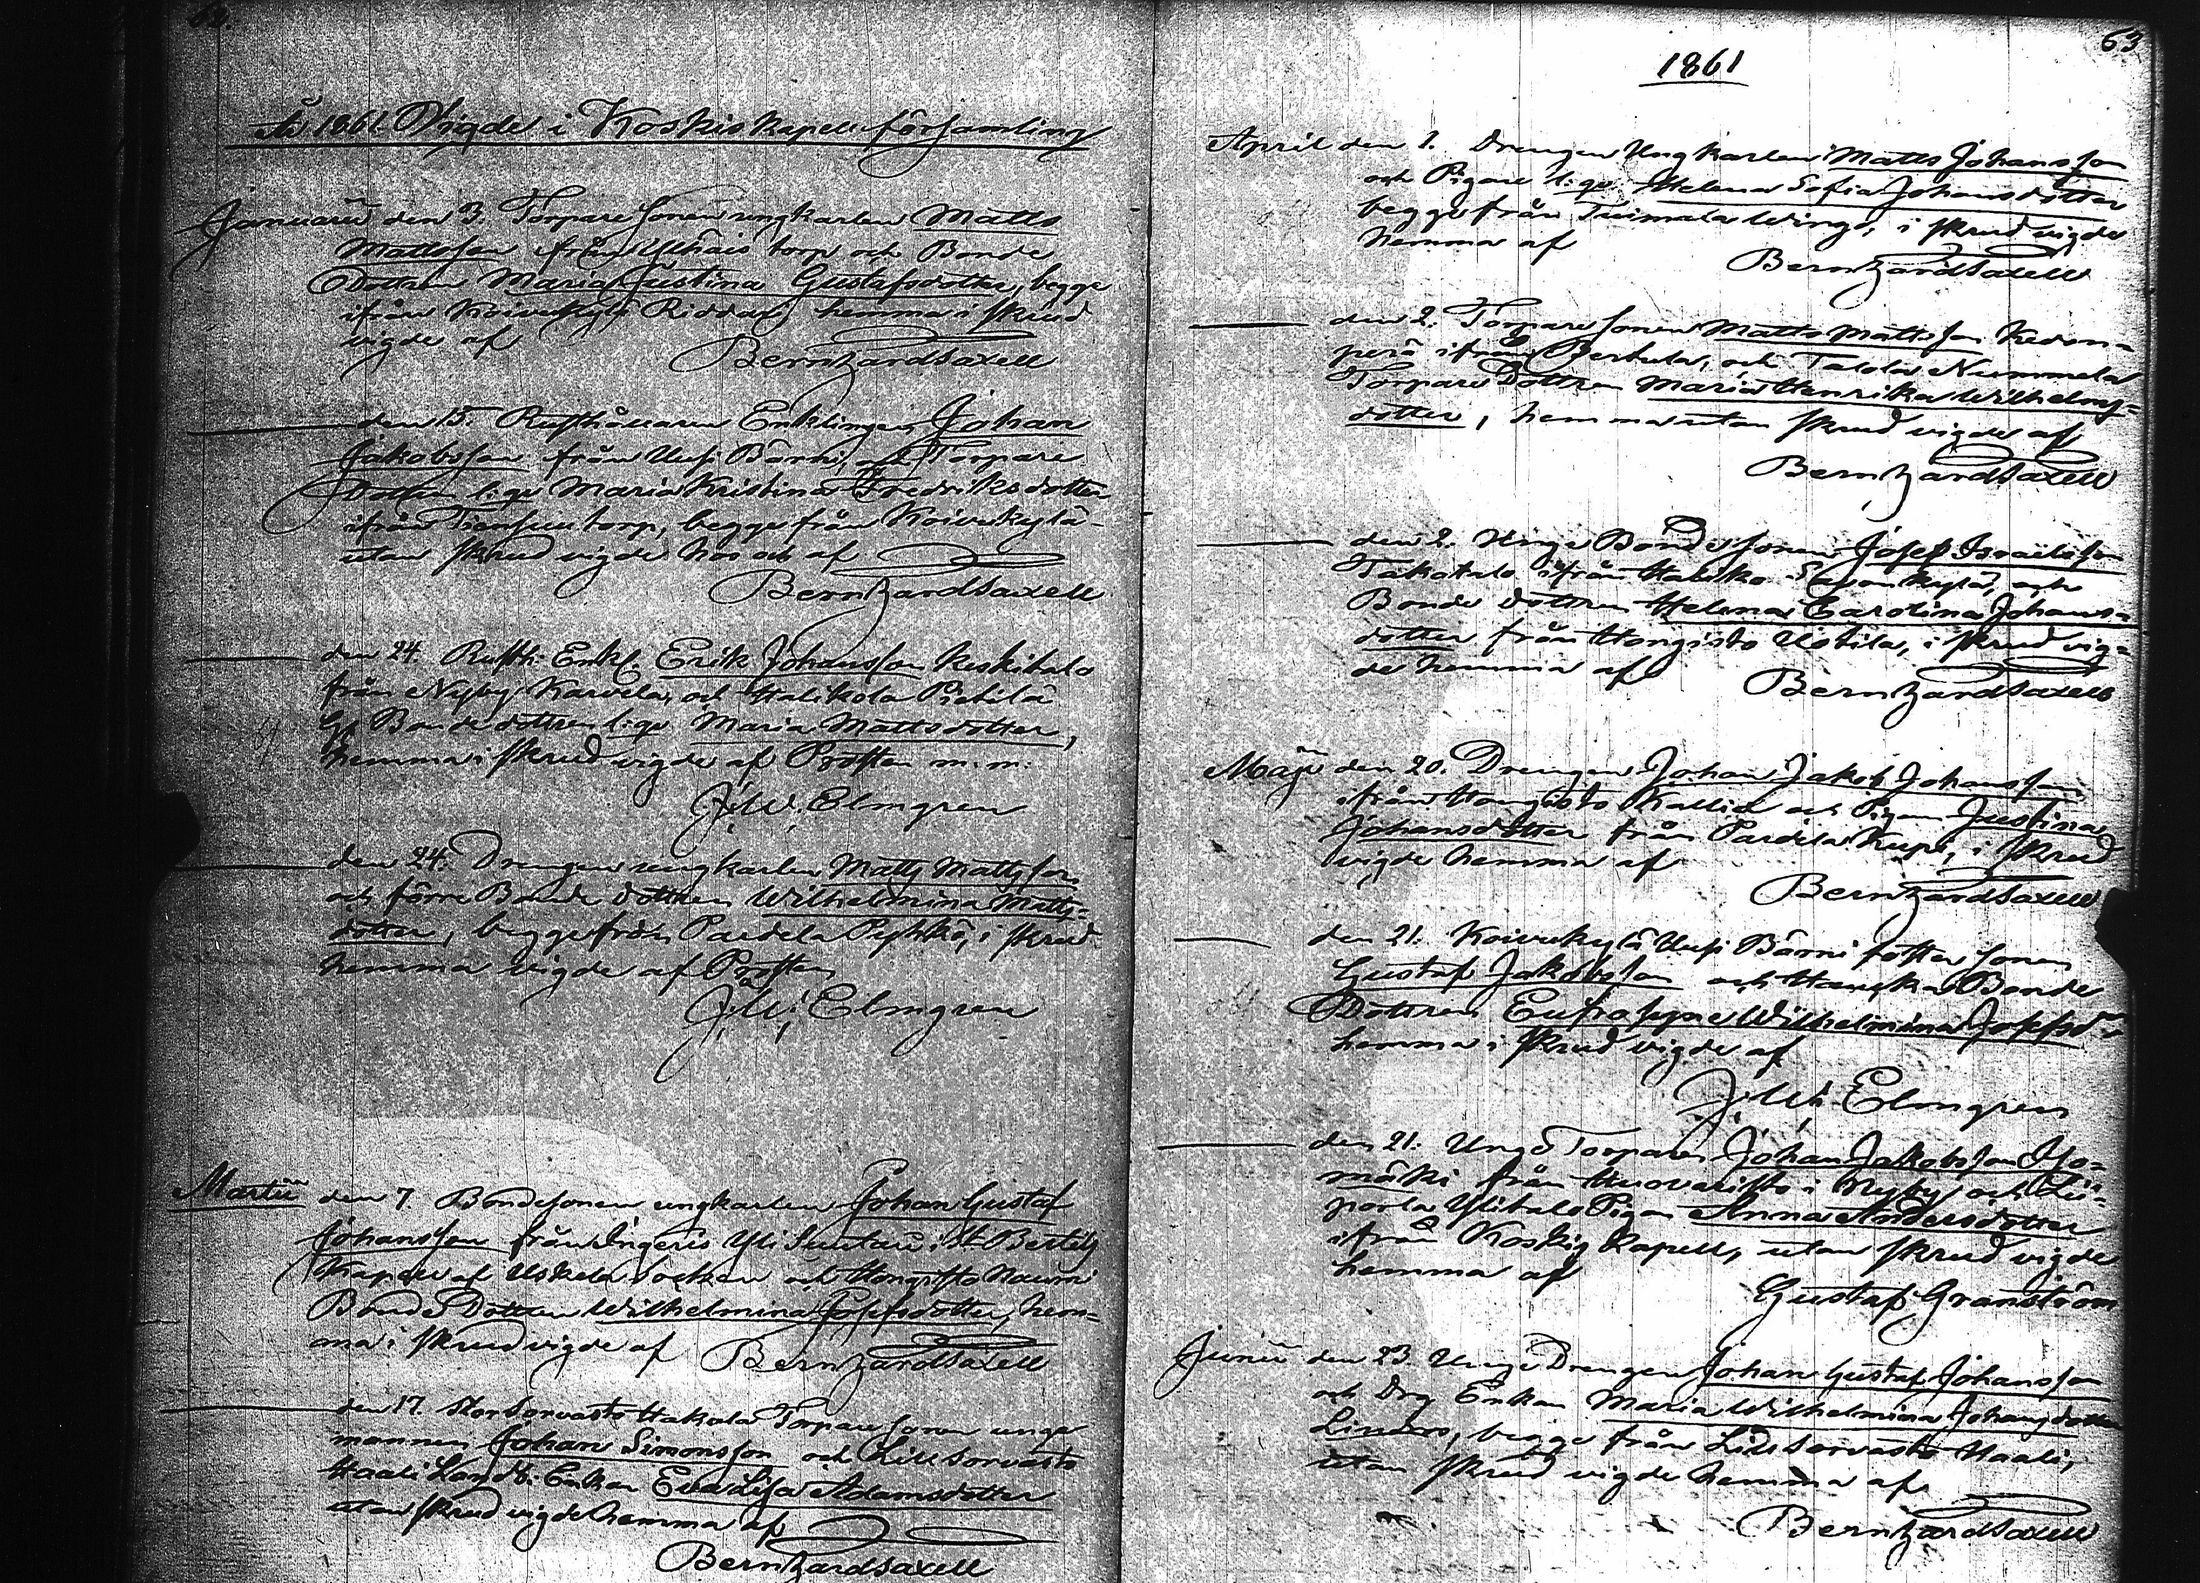 62.
År 1861 Vigde i Koskis kapell församling
Januarii den 3. Torpare sonen ungkarlen Matts
Mattsson från torp och Bonde
Dottren Maria Justina Gustafsdotter, begge
ifrån Koivukylä Riddar, hemma i skrud
vigde af
Bernhard Saxell
den 15. Rusthållaren Enklingen Johan
Jakobsson från Uusi Bärni, och Torpare
Dottren l:ge Maria Kristina Fredriksdotter
ifrån torp, begge från Koivukylä
utan skrud vigde hos och af
Bernhard Saxell
den 24. Rusth: Enkl. Erik Johansson Keskitalo
från Nyby Karvela, och Halikola Pietilä
Bonde dottren l:ge Maria Mattsdotter,
hemma i skrud vigde af Prosten m. m.
J. W. Elmgren
den 24. Drengen ungkarlen Matts Mattsson
och förre Bonde dottren Wilhelmina Matts-
dotter, begge från Pardela i skrud
hemma vigde af Prosten
J. W. Elmgren
Martii den 7. Bondesonen ungkarlen Johan Gustaf
Johansson från Ingeris Yli Suutari i St. Bertils
Kapell af Uskela Socken och Hongisto Nauri
Bonde Dottren Wilhelmina Josefsdotter, hem-
ma i skrud vigde af Bernhard Saxell
den 17. Storsorvasto Hakala Torpare sonen unge
mannen Johan Simonsson och Lillsorvasto
Haali Landb. Enkan Eva Lisa Adamsdotter
utan skrud vigde hemma af
Bernhard Saxell
63
1861
April den 1. Drengen Ungkarlen Matts Johansson
och Pigan l:ge Helena Sofia Johansdotter
begge från Tuimala i skrud vigde
hemma af
Bernhard Saxell
den 2. Torpare sonen Matts Mattsson Kedon-
perä ifrån Pertula, och Talola Nummela
Torpare Dottren Maria Henrika Wilhelms-
dotter, hemma utan skrud vigde af
Bernhard Saxell
den 2. Unge Bonde sonen Josef Israelsson
Takatalo ifrån och
Bonde dottren Helena Carolina Johans-
dotter från Hongisto Uotila, i skrud vig-
de hemma af
Bernhard Saxell
Maji den 20. Drengen Johan Jakob Johansson
ifrån Hongisto Kallio och Pigan Justina
Johansdotter från Pardela i skrud
vigde hemma af
Bernhard Saxell
den 21. Koivukylä Uusi Bärni foster sonen
Gustaf Jakobsson och Bonde
Dottren Eufrosyne Wilhelmina Josefsdr
hemma i skrud vigde af
J. W. Elmgren
den 21. Unge Torparen Johan Jakobsson Iso-
mäki från i Nyby och Lii-
pola Ylitalo Pigan Anna Andersdotter
ifrån Koskis Kapell, utan skrud vigde
hemma af
Gustaf Granström
Junii den 23. Unge Drengen Johan Gustaf Johansson
och Drg Enkan Maria Wilhelmina Johansdotter
begge från Lillsorvasto Haali,
utan skrud vigde hemma af
Bernhard Saxell